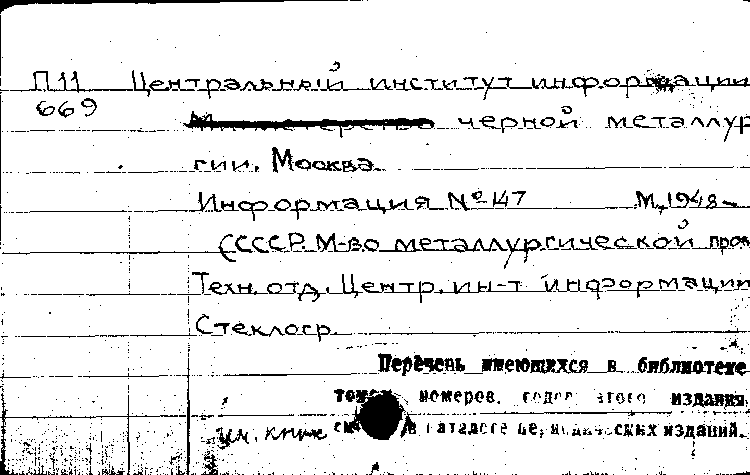 П11 Центральный институт информации
669 Министерства черной металлур
гии. Москва.
Информация № 147 М., 1948-
(СССР. М-во металлургической пром
Техн. отд. Центр. ин-т информации
Стеклогр.
Перечень имеющихся в библиотеке
томов, номеров, годов этого издания
см. в каталоге периодических изданий.